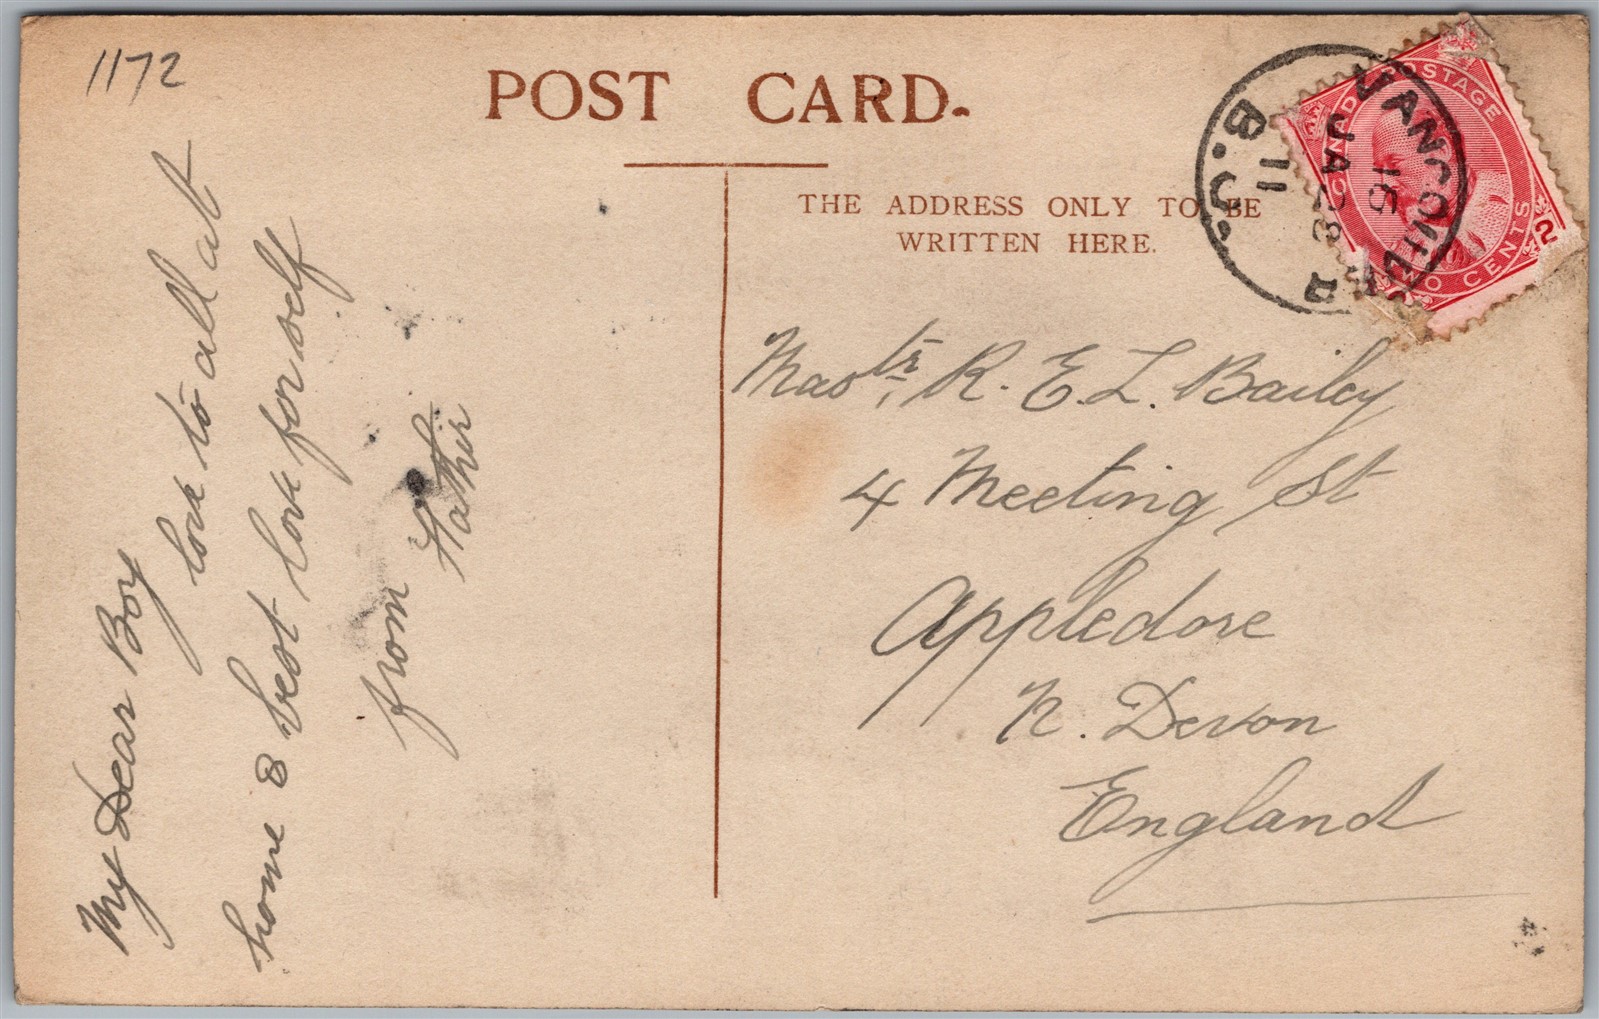 1172
POST CARD.
THE ADDRESS ONLY TO BE
WRITTEN HERE.
CANADA POSTAGE
TWO CENTS
2
VANCOUVER
B.C.
15
JA 28
11
My Dear Boy
love to all at
home & best love for self
from Father
Mastr, R. E. L. Bailey
4 Meeting St
Appledore
N. Devon
England